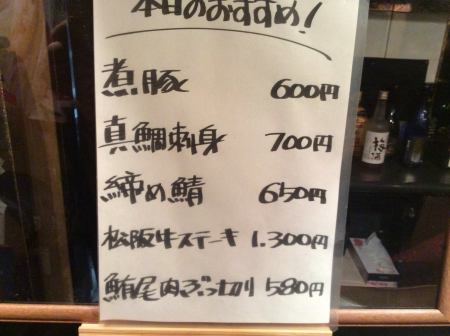 本日のおすすめ!
煮豚 600円
真鯛刺身 700円
締め鯖 650円
松阪牛ステーキ 1.300円
鮪尾肉ぶつ切り 580円
梅酒